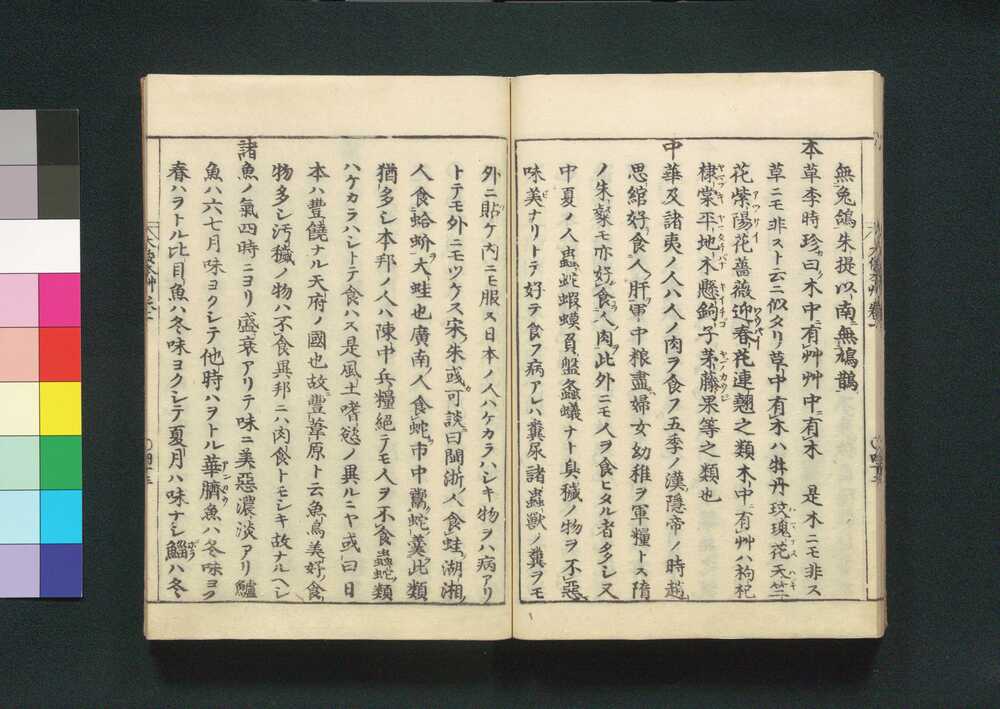 無兔鴿朱提以南無鳩鵲
本草李時珍曰木中有艸艸中有木　是木ニモ非ス
草ニモ非スト云ニ似タリ草中有木ハ牡丹玫瑰花天竺
花紫陽花薔薇迎春花連翹之類木中有艸ハ枸杞
棣棠平地木懸鉤子茅藤果等之類也
中華及諸夷ノ人ハ人ノ肉ヲ食フ五季ノ漢隱帝ノ時趙
思綰好食人肝軍中粮盡婦女幼稚ヲ軍糧トス隋
ノ朱粲モ亦好食人肉此外ニモ人ヲ食ヒタル者多シ又
中夏ノ人蟲蛇蝦蟆負盤螽蟻ナト臭穢ノ物ヲ不惡
味美ナリトテ好テ食フ病アレハ糞尿諸蟲獸ノ糞ヲモ
外ニ貼ケ内ニモ服ス日本ノ人ハケカラハシキ物ヲハ病アリ
トテモ外ニモツケス宋ノ朱彧可談曰閩浙ノ人食蛙湖湘
人食蛤蚧大蛙也廣南ノ人食蛇市中鬻蛇羹此類
猶多シ本邦ノ人ハ陳中兵糧絕テモ人ヲ不食蟲蛇ノ類
ハケカラハシトテ食ハス是風土嗜慾ノ異ルニヤ或曰日
本ハ豐饒ナル天府ノ國也故豐葦原ト云魚鳥美好ノ食
物多シ汚穢ノ物ハ不食異邦ニハ肉食トモシキ故ナルヘシ
諸魚ノ氣四時ニヨリ盛衰アリテ味ニ美惡濃淡アリ鱸
魚ハ六七月味ヨクシテ他時ハヲトル華臍魚ハ冬味ヨク
春ハヲトル比目魚ハ冬味ヨクシテ夏月ハ味ナシ鯔ハ冬